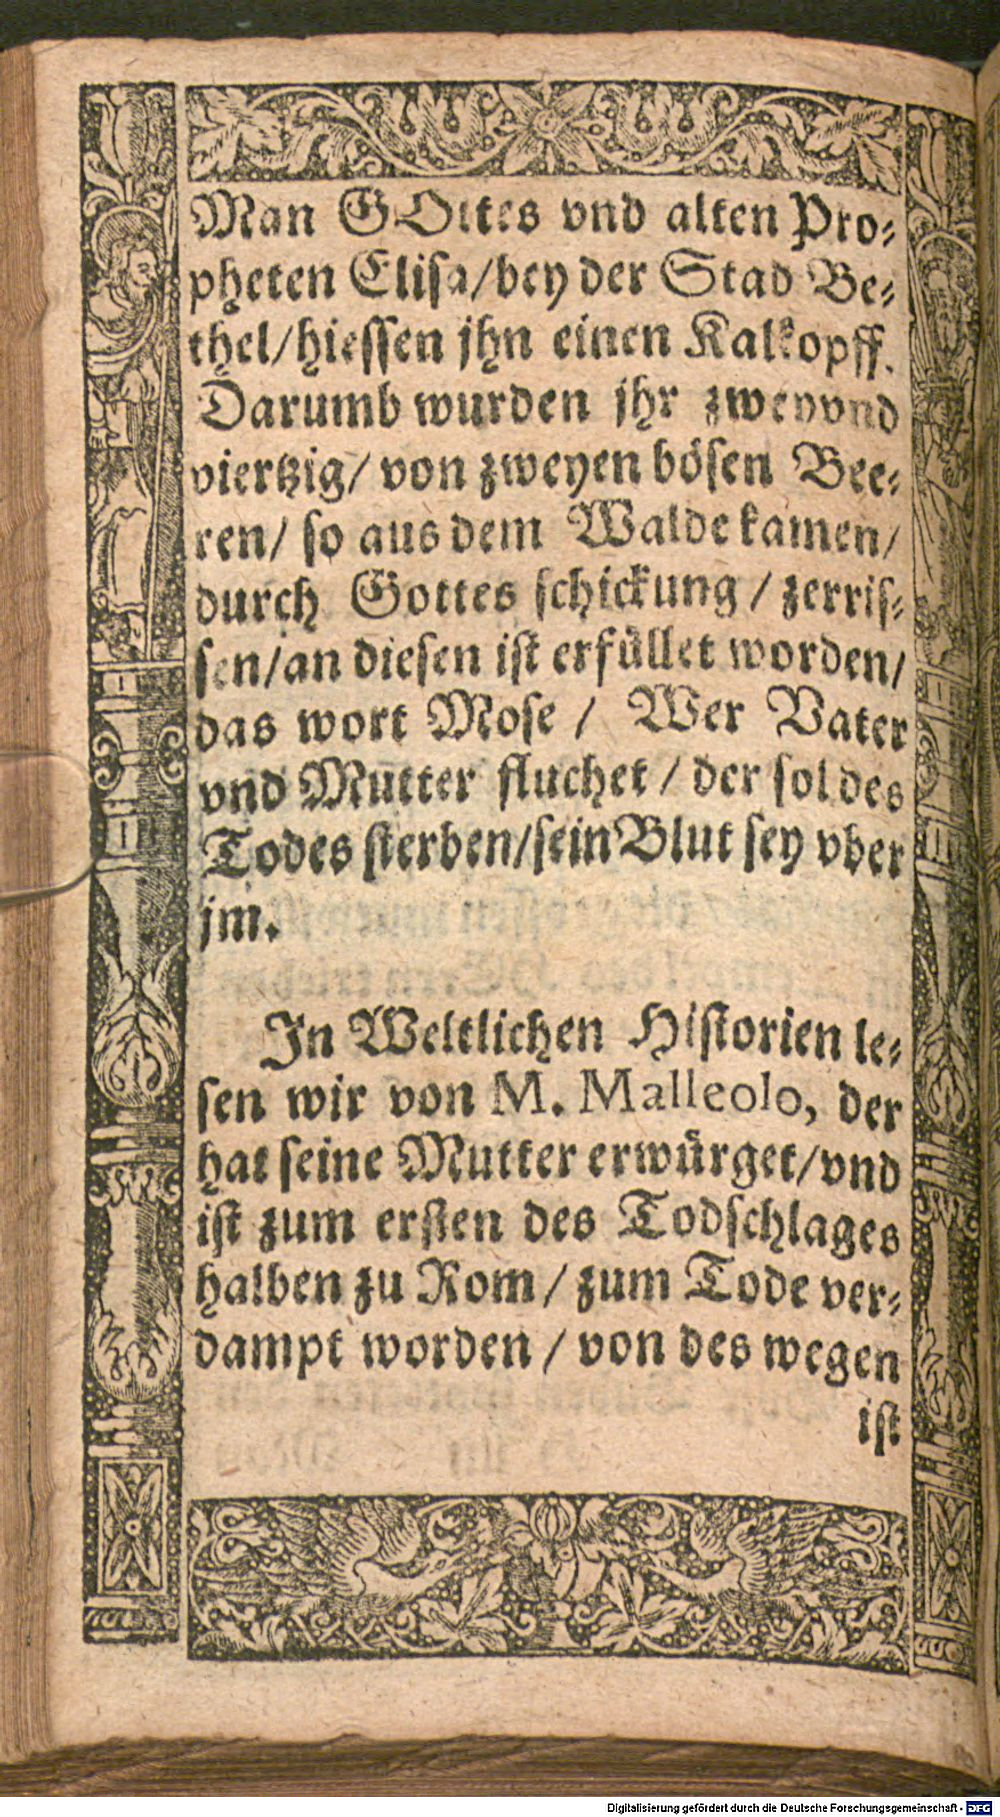 Man GOttes vnd alten Pro⸗
pheten Elisa/bey der Stad Be⸗
thel/hiessen jhn einen Kalkopff.
Darumb wurden jhr zweyvnd
viertzig/ von zweyen bösen Bee⸗
ren/ so aus dem Walde kamen/
durch Gottes schickung / zerris⸗
sen/an diesen ist erfüllet worden/
das wort Mose / Wer Vater
vnd Mutter fluchet / der sol des
Todes sterben/sein Blut sey vber
jm.
In Weltlichen Historien le⸗
sen wir von M. Malleolo, der
hat seine Mutter erwürget/vnd
ist zum ersten des Todschlages
halben zu Rom / zum Tode ver⸗
dampt worden / von des wegen
ist
Digitalisierung gefördert durch die Deutsche Forschungsgemeinschaft - DFG